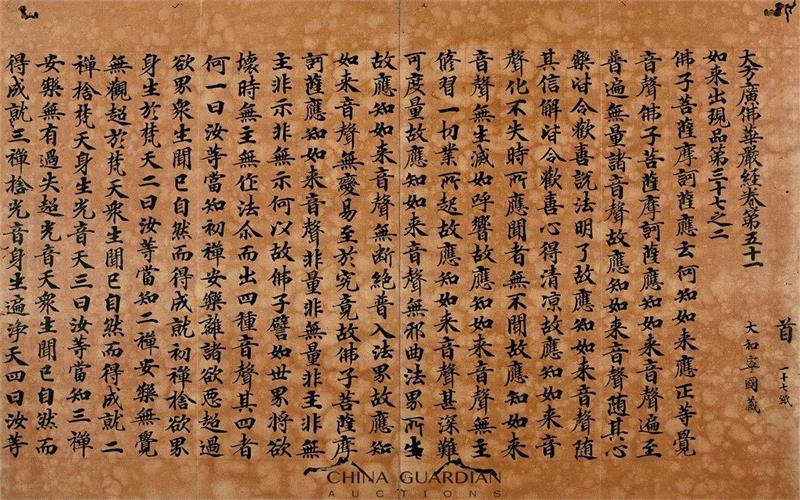 首 一十七紙
大和寧國藏
大方廣佛華嚴經卷第五十一
如來出現品第三十七之二
佛子菩薩摩訶薩應云何知如来應正等覺
音聲佛子菩薩摩訶薩應知如来音聲遍至
普遍無量諸音聲故應知如来音聲随其心
樂皆令歡喜說法明了故應知如来音聲随
其信解皆令歡喜心得清凉故應知如来音
聲化不失時所應聞者無不聞故應知如来
音聲無生滅如呼響故應知如来音聲無主
修習一切業所起故應知如来音聲甚深難
可度量故應知如来音聲無邪曲法界所生
故應知如来音聲無断絶普入法界故應知
如来音聲無變易至於究竟故佛子菩薩摩
訶薩應知如来音聲非量非無量非主非無
主非示非無示何以故佛子譬如世界將欲
壞時無主無作法尒而出四種音聲其四者
何一曰汝等當知初禪安樂離諸欲惡超過
欲界衆生聞已自然而得成就初禪捨欲界
身生於梵天二曰汝等當知二禪安樂無覺
無觀超於梵天衆生聞已自然而得成就二
禪捨梵天身生光音天三曰汝等當知三禪
安樂無有過失超光音天衆生聞已自然而
得成就三禪捨光音身生遍淨天四曰汝等
CHINA GUARDIAN
AUCTIONS